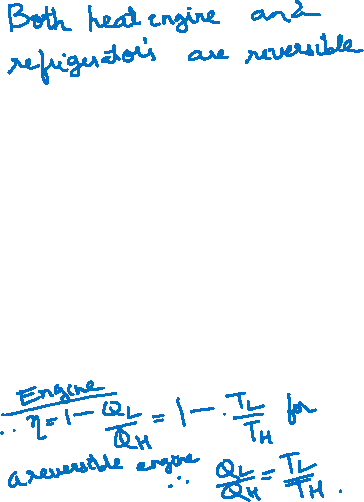 Both heat engine and
refrigerators are reversible
Engine
∴ η = 1 - Q_L/Q_H = 1 - T_L/T_H for
a reversible engine ∴ Q_L/Q_H = T_L/T_H.